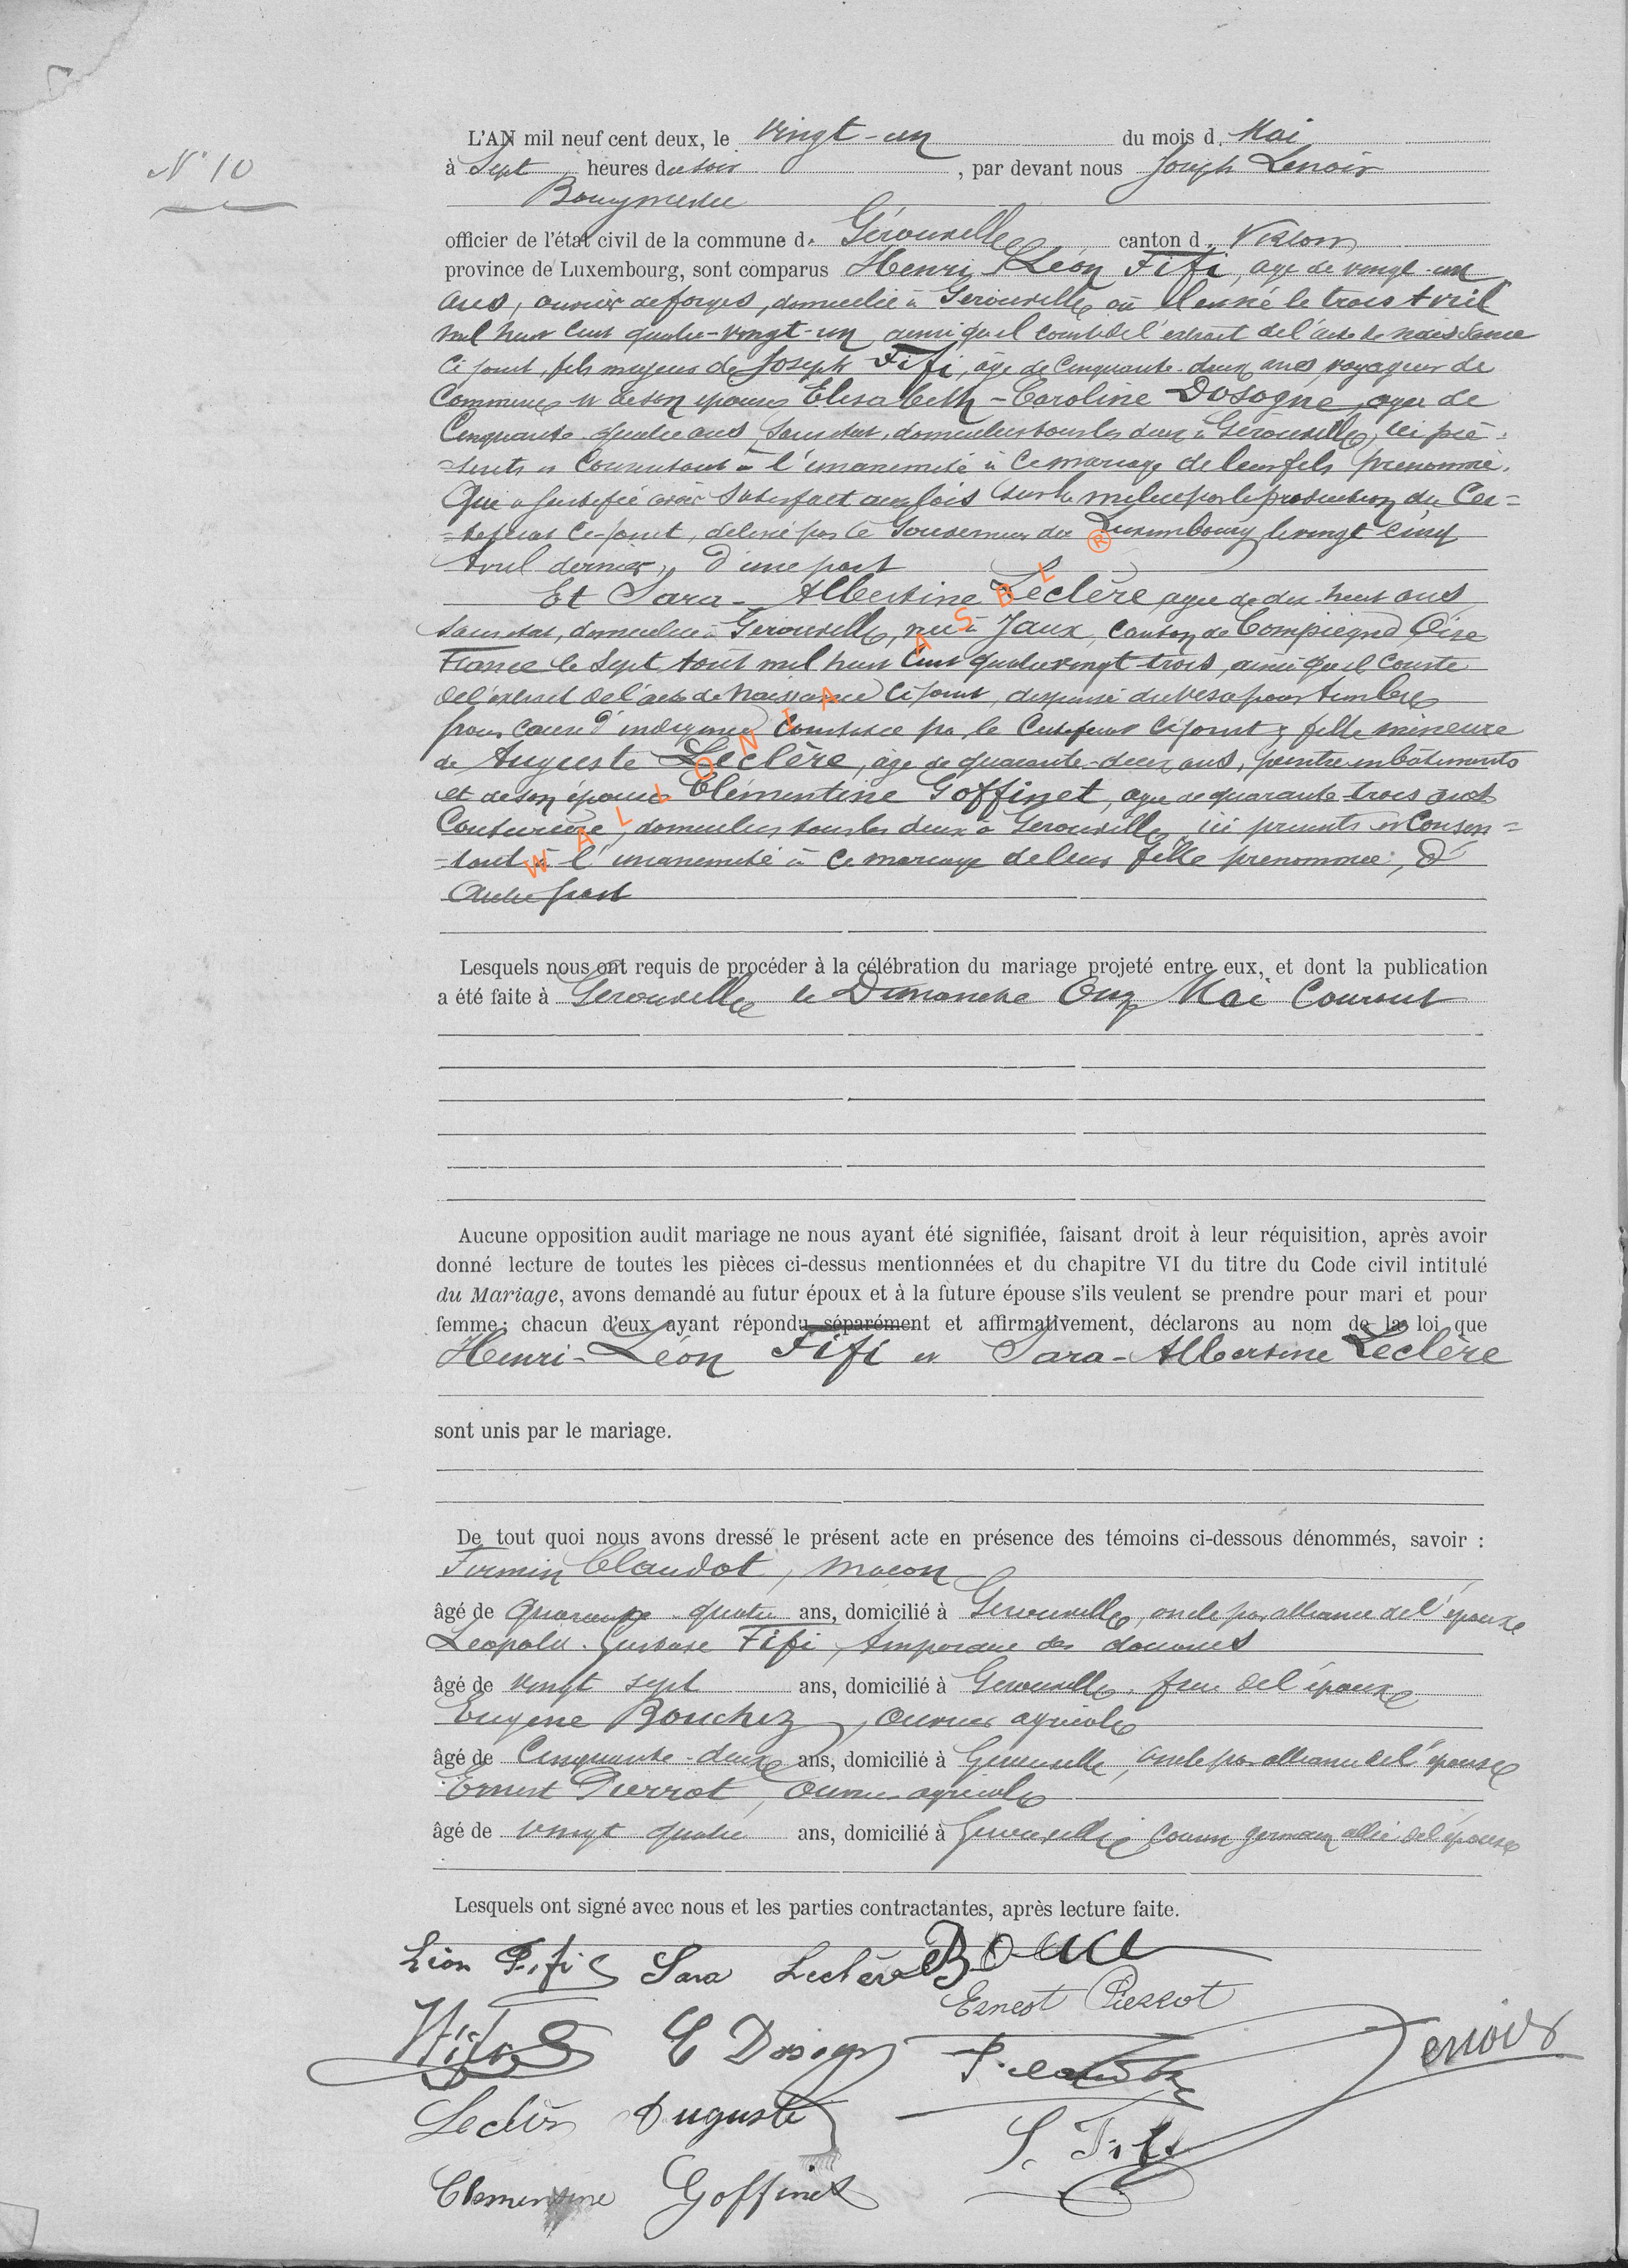 N° 10
L'AN mil neuf cent deux, le vingt-un du mois d. Mai
à Sept heures du soir , par devant nous Joseph Lenoir
Bourgmestre
officier de l'état civil de la commune d. Gérouville canton d. Virton
province de Luxembourg, sont comparus Henri Léon Fifi, âgé de vingt-un
ans, ouvrier de forges, domicilié à Gérouville où il est né le trois Avril
mil huit cent quatre-vingt-un ainsi qu'il conste de l'extrait de l'acte de naissance
ci joint, fils majeur de Joseph Fifi, âgé de cinquante-deux ans, voyageur de
Commerce et de son épouse Elisabeth-Caroline Dosogne, agée de
Cinquante quatre ans, sans état, domiciliés tous les deux à Gérouville, ici pré-
-sents et consentant à l'unanimité à ce mariage de leur fils prénommé.
Qui a justifié avoir satisfait aux lois sur la milice par la production du Cer=
=tificat ci-joint, délivré par le Gouverneur du Luxembourg le vingt cinq
Avril dernier, D'une part
Et Sara-Albertine Leclère agée de dix huit ans
sans état, domiciliée à Gérouville, née à Jaux, Canton de Compiègne Oise
France le Sept Août mil huit Cent quatre vingt trois, ainsi qu'il Conste
de l'extrait de l'acte de Naissance ci joint, dispensé du visa pour timbre
pour cause d'indigence constatée par le Certificat ci joint; fille mineure
de Auguste Leclère, âgé de quarante-deux ans, peintre en bâtiments
et de son épouse Clémentine Goffinet, agée de quarante trois ans
Couturière, domiciliés tous les deux à Gérouville, ici présents et Consen=
-tant à l'unanimité à ce mariage de leur fille prénommée, d'
Autre part
WALLONIA ASBL ®
Lesquels nous ont requis de procéder à la célébration du mariage projeté entre eux, et dont la publication
a été faite à Gérouville le Dimanche Onze Mai Courant
Aucune opposition audit mariage ne nous ayant été signifiée, faisant droit à leur réquisition, après avoir
donné lecture de toutes les pièces ci-dessus mentionnées et du chapitre VI du titre du Code civil intitulé
du Mariage, avons demandé au futur époux et à la future épouse s'ils veulent se prendre pour mari et pour
femme; chacun d'eux ayant répondu séparément et affirmativement, déclarons au nom de la loi que
Henri-Léon Fifi et Sara-Albertine Leclère
sont unis par le mariage.
De tout quoi nous avons dressé le présent acte en présence des témoins ci-dessous dénommés, savoir :
Firmin Claudot, maçon
âgé de Quarante quatre ans, domicilié à Gérouville, oncle par alliance de l'épouse
Léopold Gustave Fifi, temporaire des douanes
âgé de vingt sept ans, domicilié à Gérouville, frère de l'époux
Eugène Bouchez, ouvrier agricole
âgé de Cinquante-deux ans, domicilié à Gérouville, oncle par alliance de l'épouse
Ernest Pierrot, Ouvrier agricole
âgé de vingt quatre ans, domicilié à Gérouville cousin germain allié de l'épouse
Lesquels ont signé avec nous et les parties contractantes, après lecture faite.
Léon Fifi Sara Leclère
Ernest Pierrot
E Dosogne Lenoir
Leclère Auguste
Clementine Goffinet